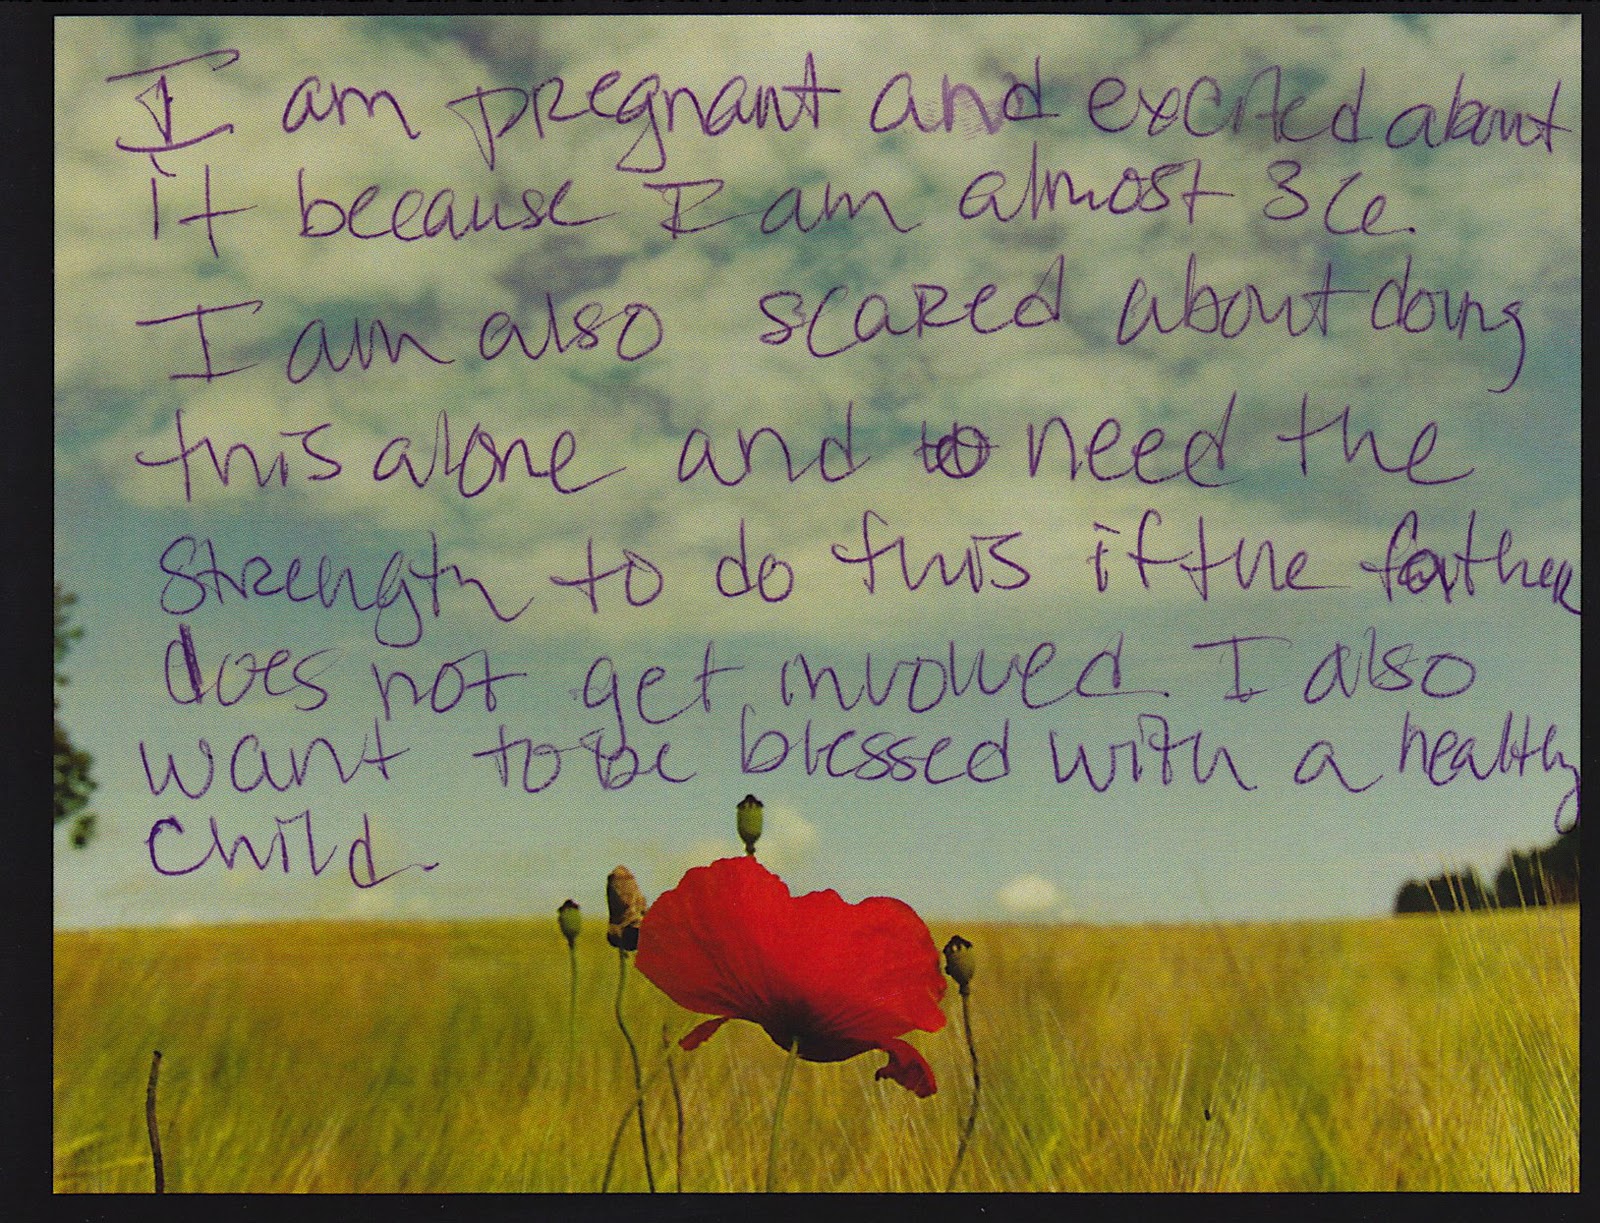 I am pregnant and excited about
it because I am almost 36.
I am also scared about doing
this alone and to need the
strength to do this if the father
does not get involved. I also
want to be blessed with a healthy
child.